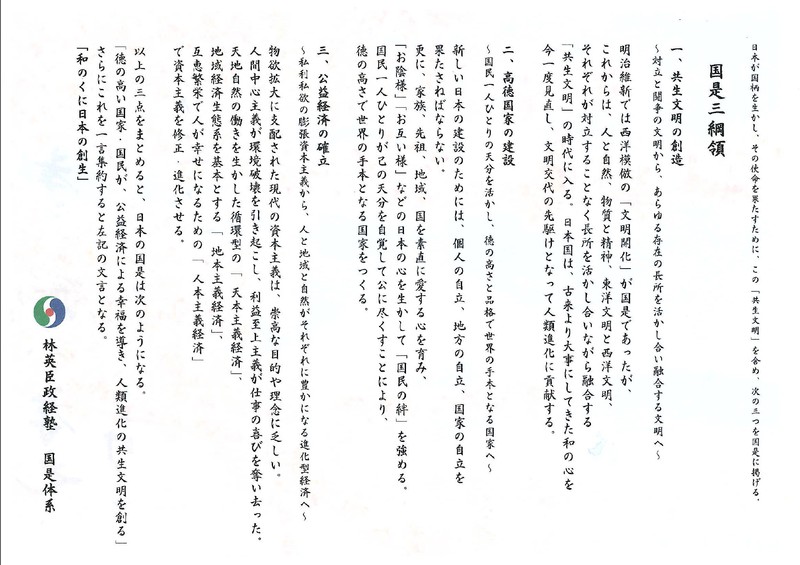 日本が国柄を生かし、その使命を果たすために、この「共生文明」を含め、次の三つを国是に掲げる。
国是三綱領
一、共生文明の創造
～対立と闘争の文明から、あらゆる存在の長所を活かし合い融合する文明へ～
明治維新では西洋模倣の「文明開化」が国是であったが、
これからは、人と自然、物質と精神、東洋文明と西洋文明、
それぞれが対立することなく長所を活かし合いながら融合する
「共生文明」の時代に入る。日本国は、古来より大事にしてきた和の心を
今一度見直し、文明交代の先駆けとなって人類進化に貢献する。
二、高徳国家の建設
～国民一人ひとりの天分を活かし、徳の高さと品格で世界の手本となる国家へ～
新しい日本の建設のためには、個人の自立、地方の自立、国家の自立を
果たさねばならない。
更に、家族、先祖、地域、国を素直に愛する心を育み、
「お陰様」「お互い様」などの日本の心を生かして「国民の絆」を強める。
国民一人ひとりが己の天分を自覚して公に尽くすことにより、
徳の高さで世界の手本となる国家をつくる。
三、公益経済の確立
～私利私欲の膨張資本主義から、人と地域と自然がそれぞれに豊かになる進化型経済へ～
物欲拡大に支配された現代の資本主義は、崇高な目的や理念に乏しい。
人間中心主義が環境破壊を引き起こし、利益至上主義が仕事の喜びを奪い去った。
天地自然の働きを生かした循環型の「天本主義経済」、
地域経済生態系を基本とする「地本主義経済」、
互恵繁栄で人が幸せになるための「人本主義経済」
で資本主義を修正・進化させる。
以上の三点をまとめると、日本の国是は次のようになる。
「徳の高い国家・国民が、公益経済による幸福を導き、人類進化の共生文明を創る」
さらにこれを一言集約すると左記の文言となる。
「和のくに日本の創生」
林英臣政経塾 国是体系